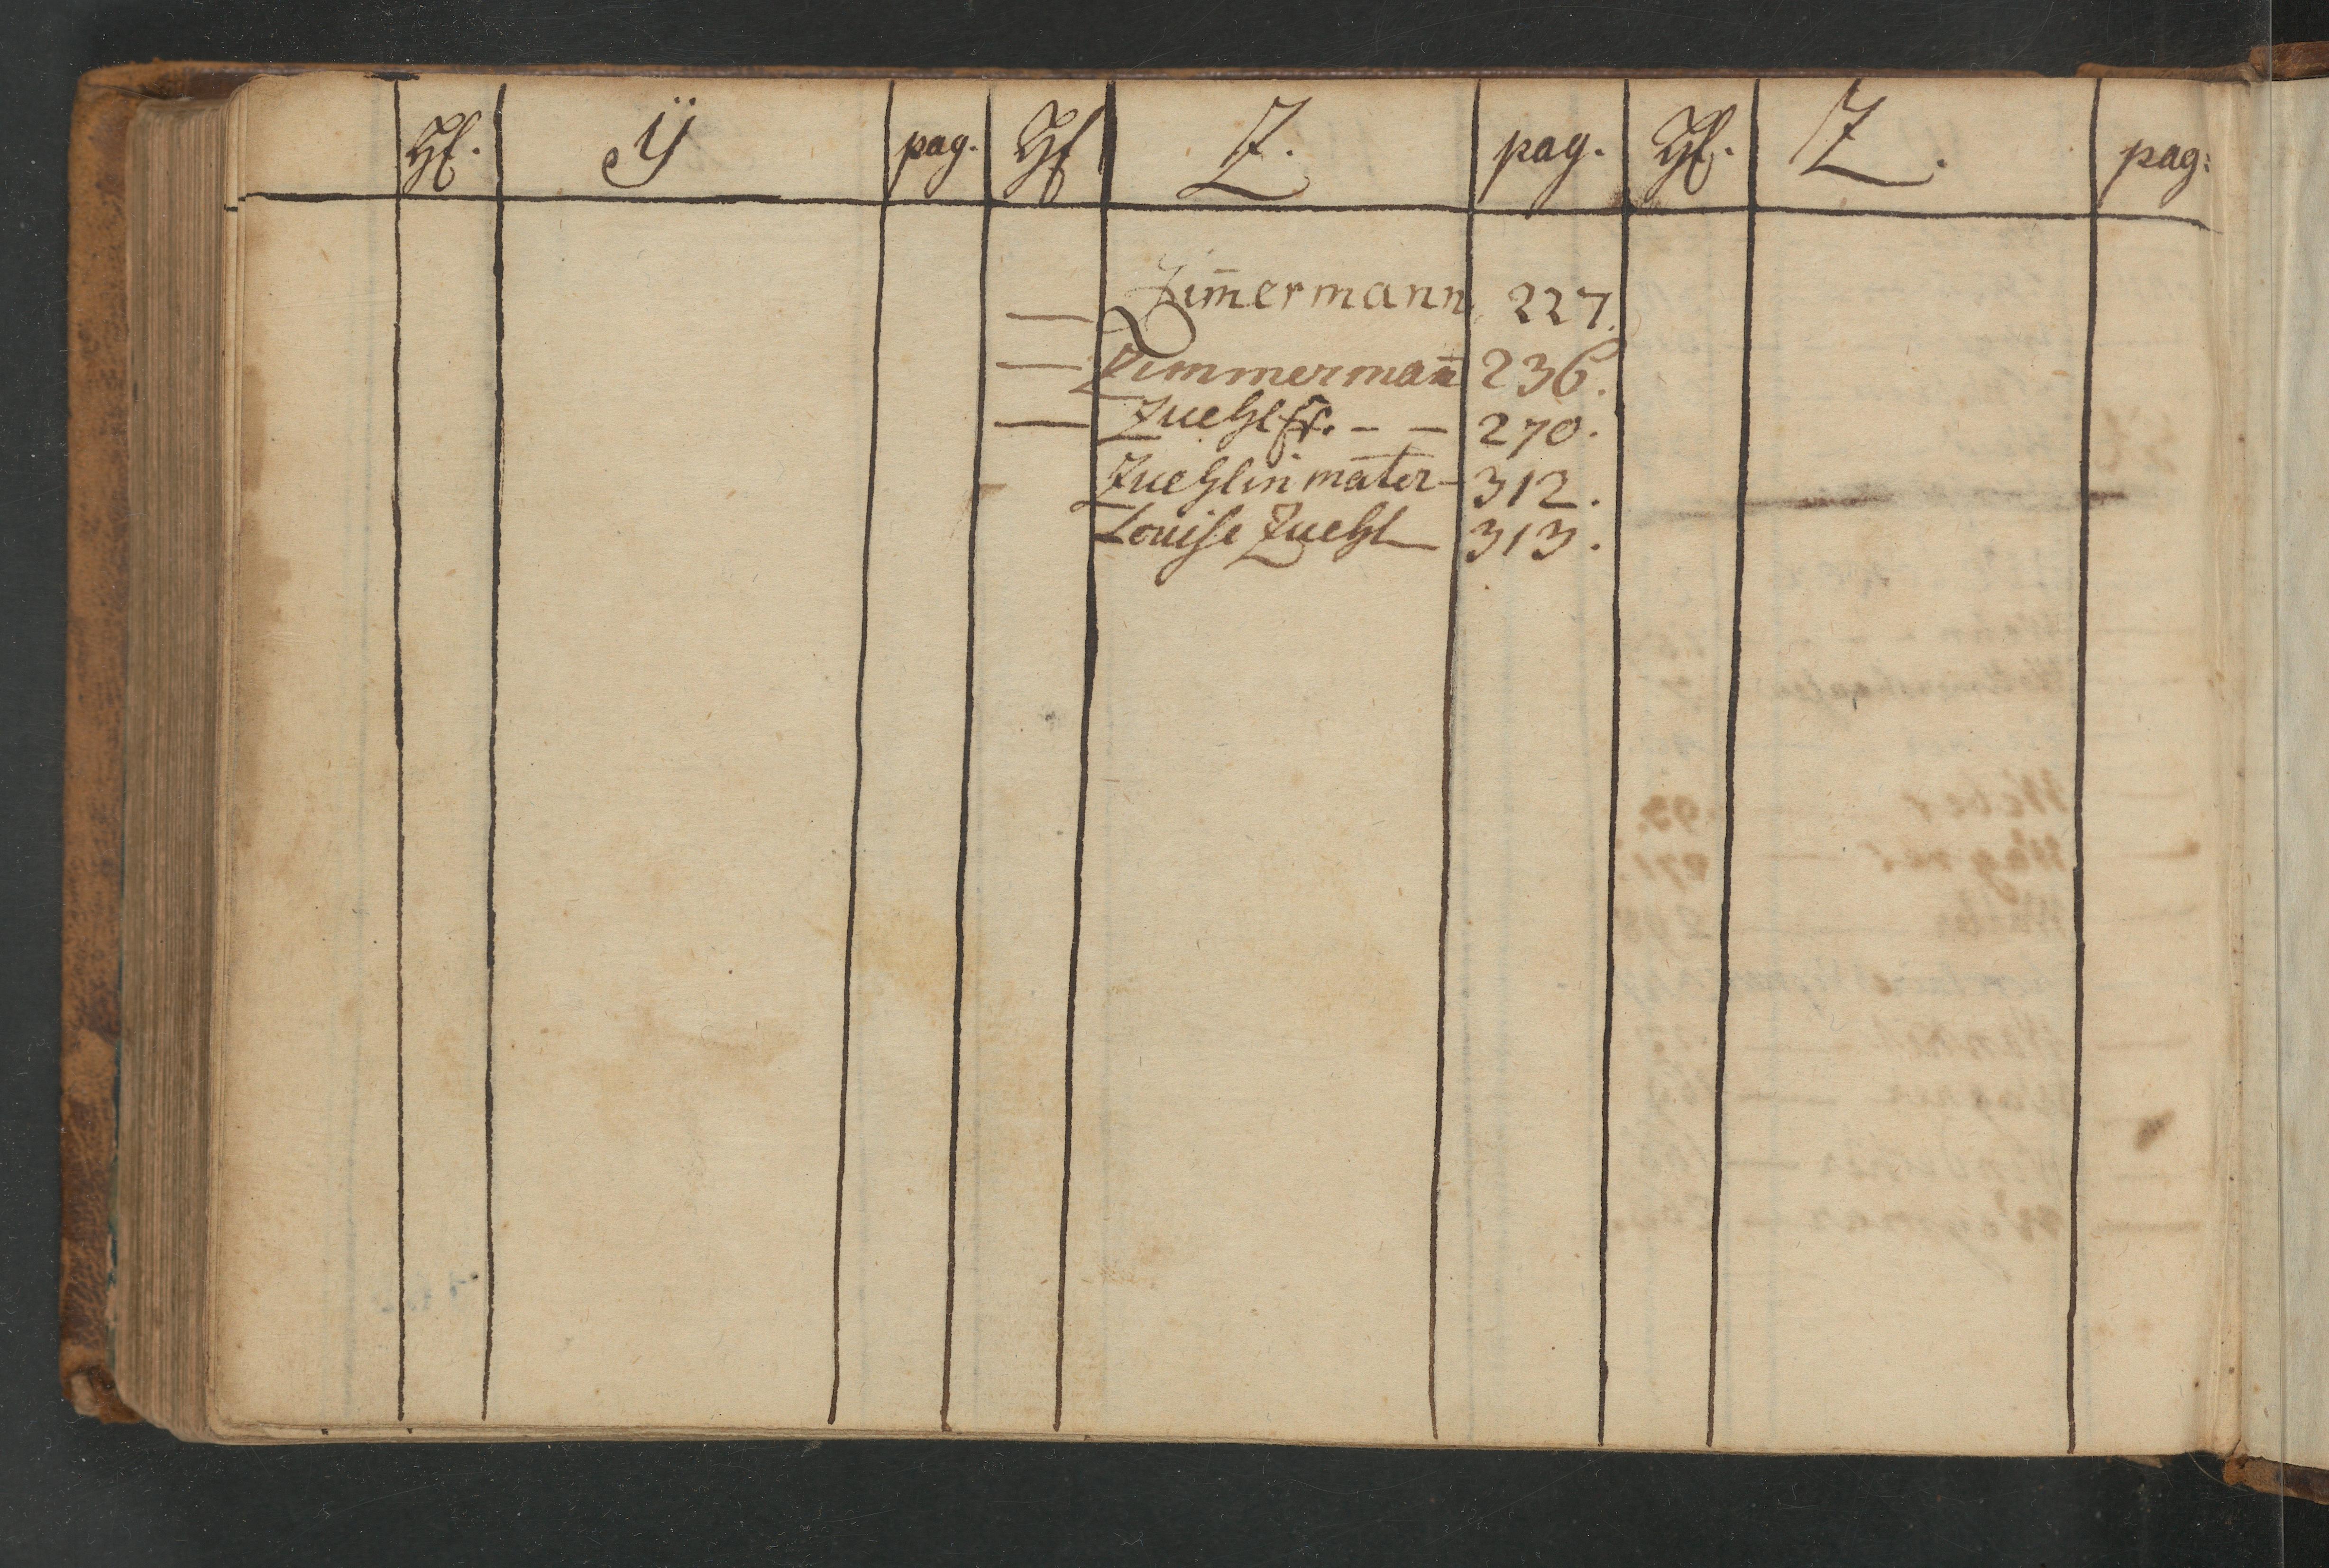 Hℓ. Ÿ pag. Hℓ Z. pag. Hℓ. Z. pag:
— Zim̄ermann 227.
— Zimmerman̄ 236.
— Zuehl fr. – – 270.
– Zuehlin mater – 312.
Louise Zuehl — 313.